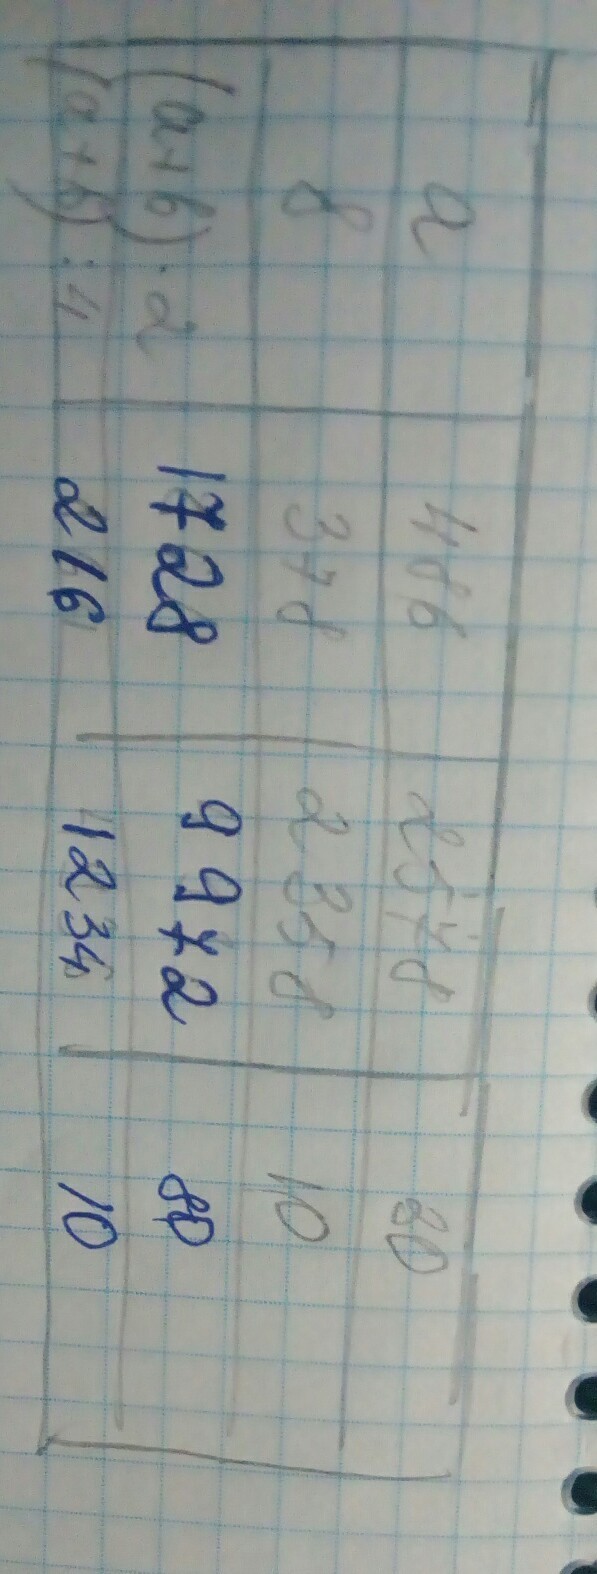 a 486 2578 30
b 378 2358 10
(a+b)·2 1728 9972 80
(a+b):4 216 1234 10